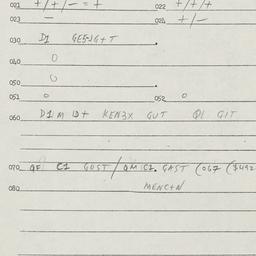 021 +/+/- = + 022 +/+/+
023 - 024 +/-
030 D1 GESJG+T
040 0
050 0
051 0 052 0
060 D1M ID+ KEN3X GUT QI GIT
070 QF C1 GUST/QM C1. GAST (067 ($492
080 MENC+N